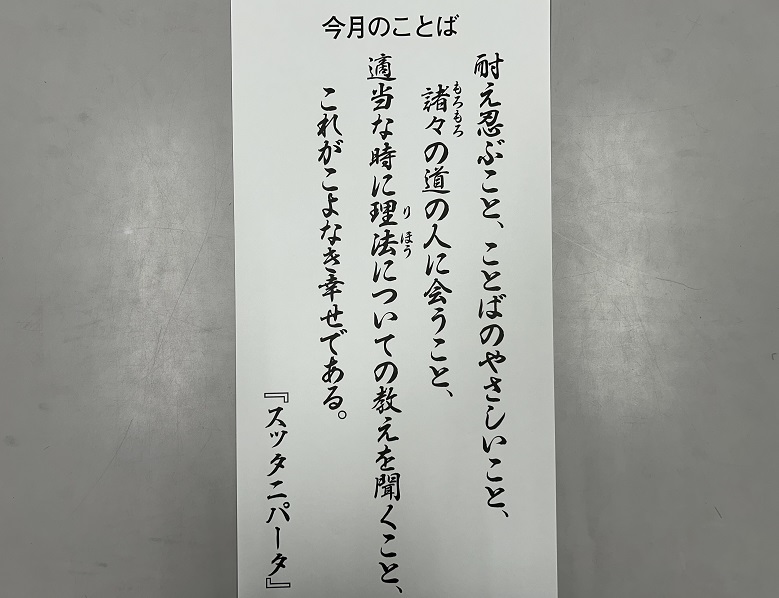 今月のことば
耐え忍ぶこと、ことばのやさしいこと、
諸々の道の人に会うこと、
もろもろ
適当な時に理法についての教えを聞くこと、
りほう
これがこよなき幸せである。
『スッタニパータ』